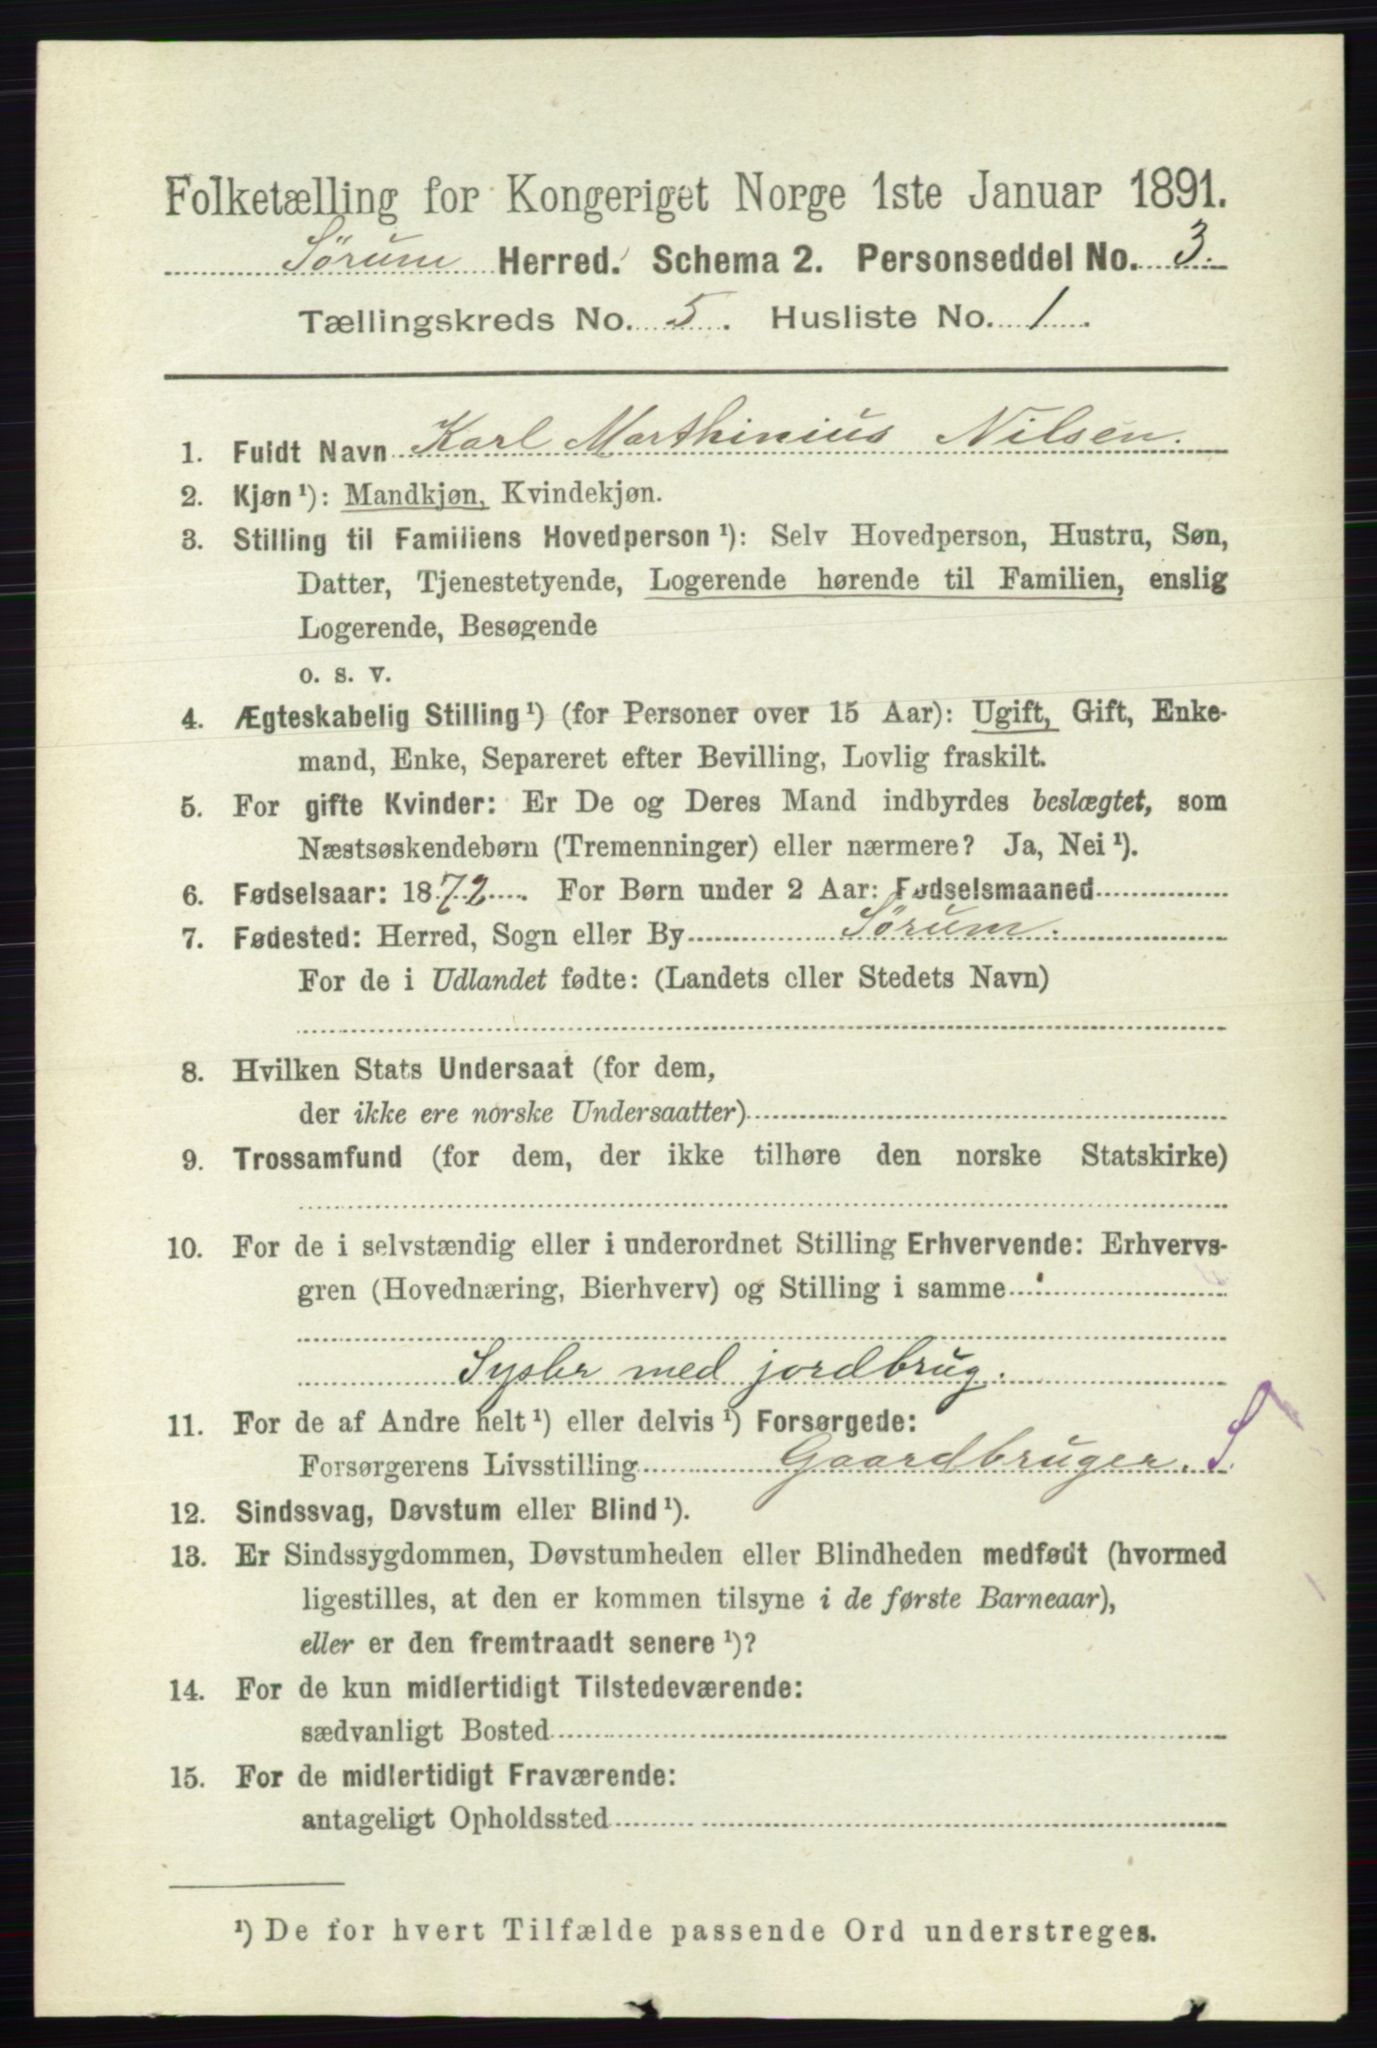 Folketælling for Kongeriget Norge 1ste Januar 1891.
Sørum Herred. Schema 2. Personseddel No. 3.
Tællingskreds No. 5. Husliste No. 1.
1. Fuldt Navn Karl Marthinius Nilsen.
2. Kjøn ¹): Mandkjøn, Kvindekjøn.
3. Stilling til Familiens Hovedperson ¹): Selv Hovedperson, Hustru, Søn,
Datter, Tjenestetyende, Logerende hørende til Familien, enslig
Logerende, Besøgende
o. s. v.
4. Ægteskabelig Stilling ¹) (for Personer over 15 Aar): Ugift, Gift, Enke-
mand, Enke, Separeret efter Bevilling, Lovlig fraskilt.
5. For gifte Kvinder: Er De og Deres Mand indbyrdes beslægtet, som
Næstsøskendebørn (Tremenninger) eller nærmere? Ja, Nei ¹).
6. Fødselsaar: 1872. For Børn under 2 Aar: Fødselsmaaned
7. Fødested: Herred, Sogn eller By Sørum.
For de i Udlandet fødte: (Landets eller Stedets Navn)
8. Hvilken Stats Undersaat (for dem,
der ikke ere norske Undersaatter)
9. Trossamfund (for dem, der ikke tilhøre den norske Statskirke)
10. For de i selvstændig eller i underordnet Stilling Erhvervende: Erhvervs-
gren (Hovednæring, Bierhverv) og Stilling i samme
med jordbrug.
11. For de af Andre helt ¹) eller delvis ¹) Forsørgede:
Forsørgerens Livsstilling Gaardbruger. S.
12. Sindssvag, Døvstum eller Blind ¹).
13. Er Sindssygdommen, Døvstumheden eller Blindheden medfødt (hvormed
ligestilles, at den er kommen tilsyne i de første Barneaar),
eller er den fremtraadt senere ¹)?
14. For de kun midlertidigt Tilstedeværende:
sædvanligt Bosted
15. For de midlertidigt Fraværende:
antageligt Opholdssted
¹) De for hvert Tilfælde passende Ord understreges.